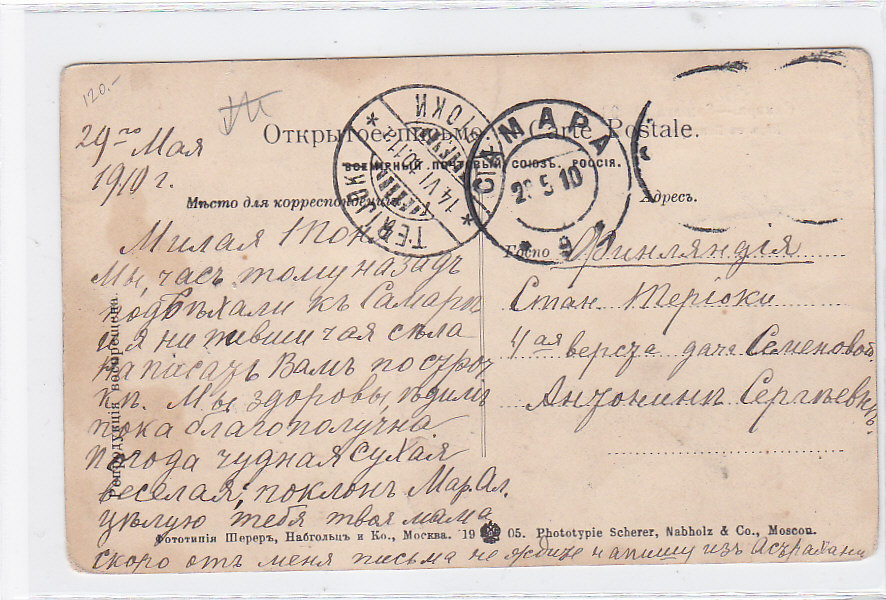 120.-
29го Мая
1910 г.
Открытое письмо. Carte Postale.
ВСЕМІРНЫЙ ПОЧТОВЫЙ СОЮЗЪ. РОССІЯ.
Мѣсто для корреспонденціи
Адресъ.
ТЕРІОКИ
14 VI 10
САМАРА
5 10
Милая Тон
Мы, часъ тому назадъ
подъѣхали къ Самарѣ
и я ни пивши чая сѣла
написать Вамъ по строч
кѣ. Мы здоровы, ѣдимъ
пока благополучна
погода чудная сухая
веселая, поклонъ Мар. Ал.
цѣлую тебя твоя мама
скоро отъ меня письма не ждите напишу изъ Астрахани
Финляндія
Стан Теріоки
4ая верста дача Семеновой
Антонинѣ Сергѣевнѣ.
Репродукція воспрещена.
Фототипія Шереръ, Набгольцъ и Ко., Москва. 19 05. Phototypie Scherer, Nabholz & Co., Moscou.